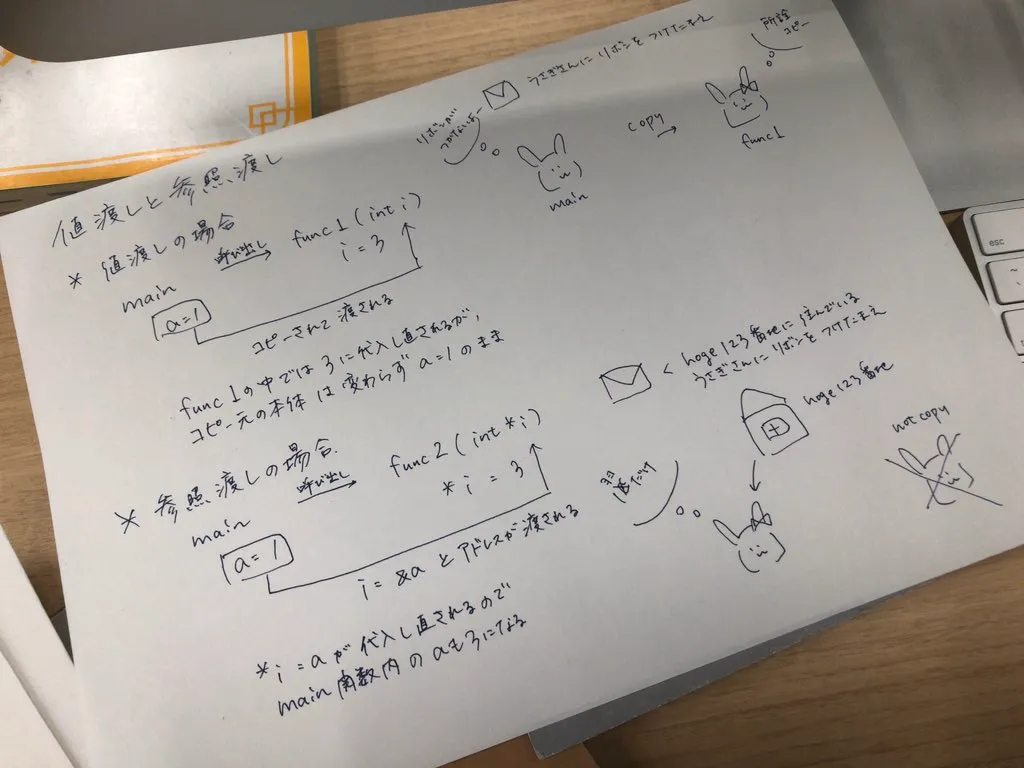 値渡しと参照渡し
* 値渡しの場合
main
a=1
呼び出し
func1(int i)
i=3
コピーされて渡される
func1の中では3に代入し直されるが,
コピー元の本体は変わらずa=1のまま
* 参照渡しの場合
main
a=1
呼び出し
func2(int *i)
*i = 3
i = &a とアドレスが渡される
*i = aが代入し直されるので
main関数内のaも3になる
うさぎさんにリボンをつけたまえ
リボンが
main
copy
func1
所詮
コピー
< hoge123番地に住んでいる
うさぎさんにリボンをつけたまえ
hoge123番地
not copy
esc